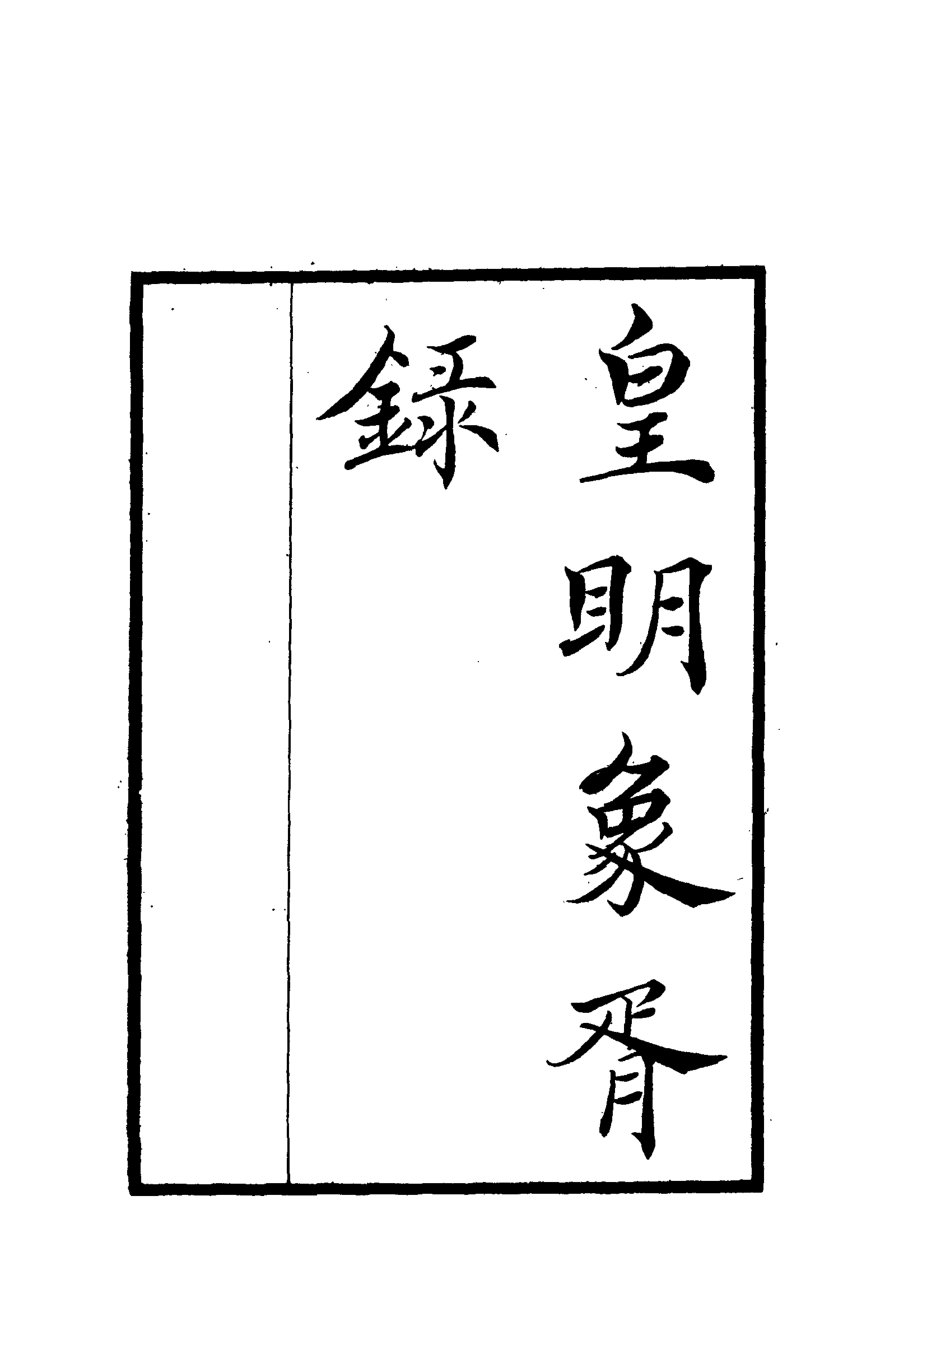 皇明象胥
録